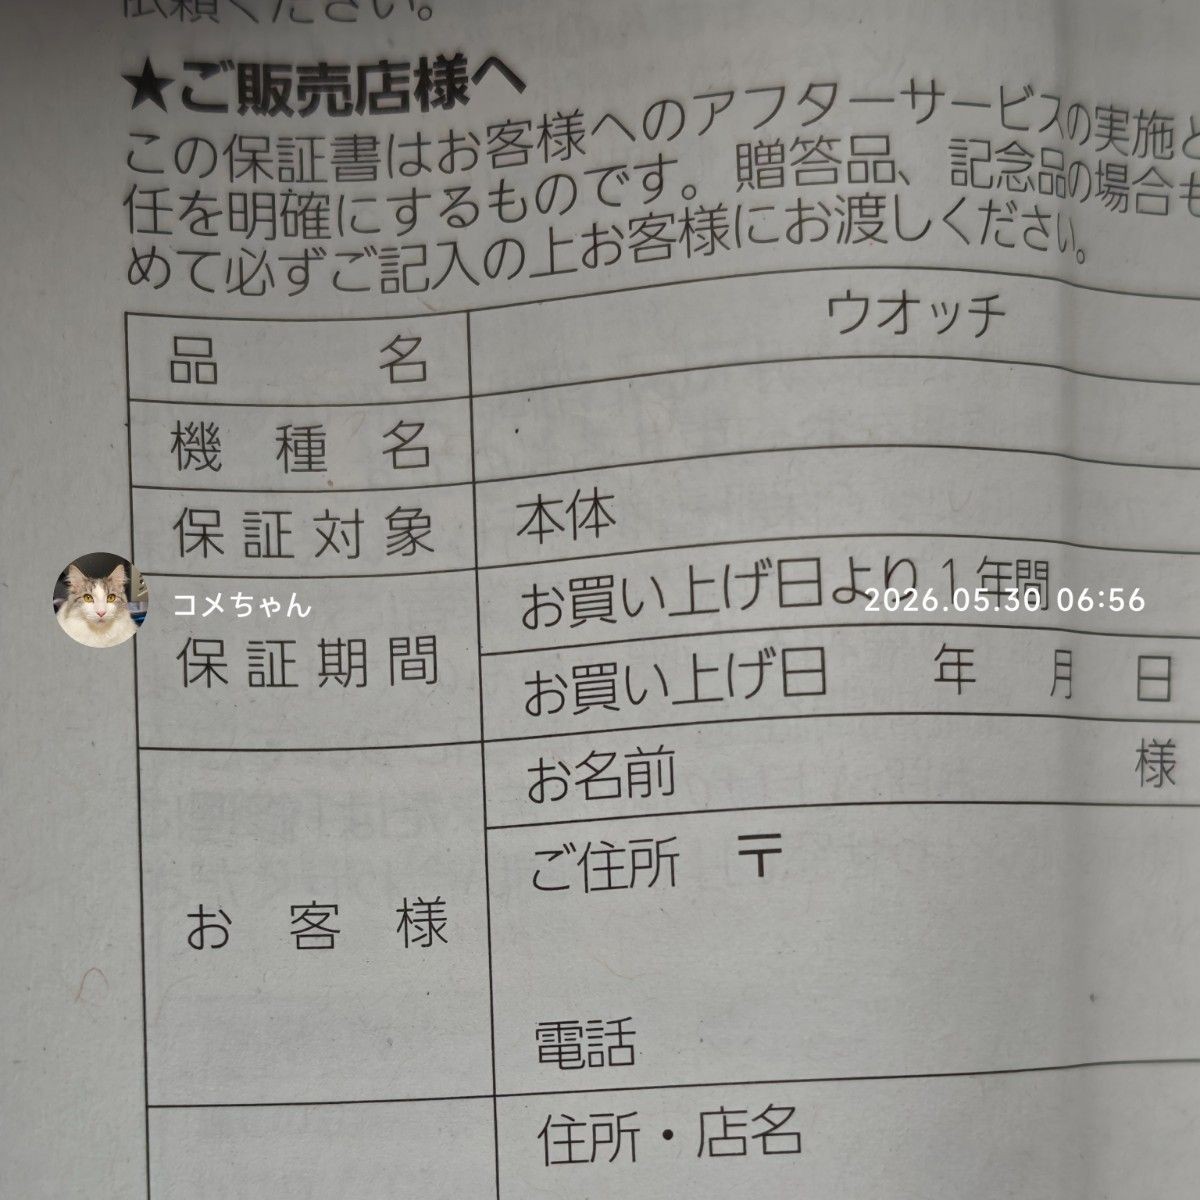 依頼ください。
★ご販売店様へ
この保証書はお客様へのアフターサービスの実施と
任を明確にするものです。贈答品、記念品の場合も
めて必ずご記入の上お客様にお渡しください。
品名 ウオッチ
機種名
保証対象 本体
保証期間 お買い上げ日より1年間
コメちゃん 2026.05.30 06:56
お買い上げ日 年 月 日
お客様 お名前 様
ご住所 〒
電話
住所・店名